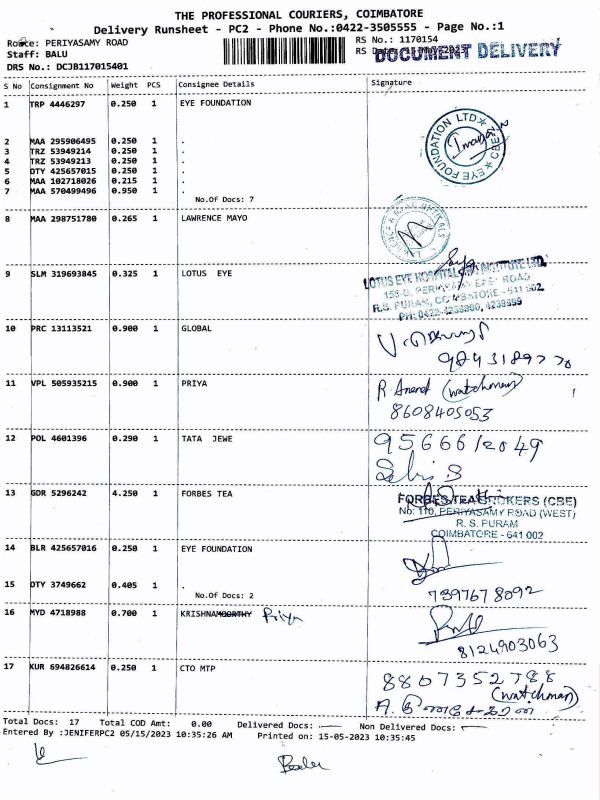 THE PROFESSIONAL COURIERS, COIMBATORE
Delivery Runsheet - PC2 - Phone No.:0422-3505555 - Page No.:1
Route: PERIYASAMY ROAD
RS No.: 1170154
Staff: BALU
RS Date: 15 May 2023
DOCUMENT DELIVERY
DRS No.: DCJB117015401
S No Consignment No Weight PCS Consignee Details Signature
1 TRP 4446297 0.250 1 EYE FOUNDATION
EYE FOUNDATION LTD CBE
2 MAA 295906495 0.250 1 .
3 TRZ 53949214 0.250 1 .
4 TRZ 53949213 0.250 1 .
5 DTY 425657015 0.250 1 .
6 MAA 102718026 0.215 1 .
7 MAA 570499496 0.950 1 .
No.Of Docs: 7
8 MAA 298751780 0.265 1 LAWRENCE MAYO
9 SLM 319693845 0.325 1 LOTUS EYE
LOTUS EYE HOSPITAL AND INSTITUTE LTD.
PERIYASAMY EAST ROAD
R.S. PURAM, COIMBATORE - 641 002
10 PRC 13113521 0.900 1 GLOBAL
11 VPL 505935215 0.900 1 PRIYA
R. Anand (watchman)
8608405053
12 POL 4601396 0.290 1 TATA JEWE
9566612049
13 GDR 5296242 4.250 1 FORBES TEA
FORBES TEA BROKERS (CBE)
No: 110, PERIYASAMY ROAD (WEST)
R. S. PURAM
COIMBATORE - 641 002
14 BLR 425657016 0.250 1 EYE FOUNDATION
15 DTY 3749662 0.405 1 .
No.Of Docs: 2
7397678092
16 MYD 4718988 0.700 1 KRISHNAMOORTHY Priya
8124903063
17 KUR 694826614 0.250 1 CTO MTP
8807352788
(watchman)
Total Docs: 17 Total COD Amt: 0.00 Delivered Docs: Non Delivered Docs:
Entered By :JENIFERPC2 05/15/2023 10:35:26 AM Printed on: 15-05-2023 10:35:45